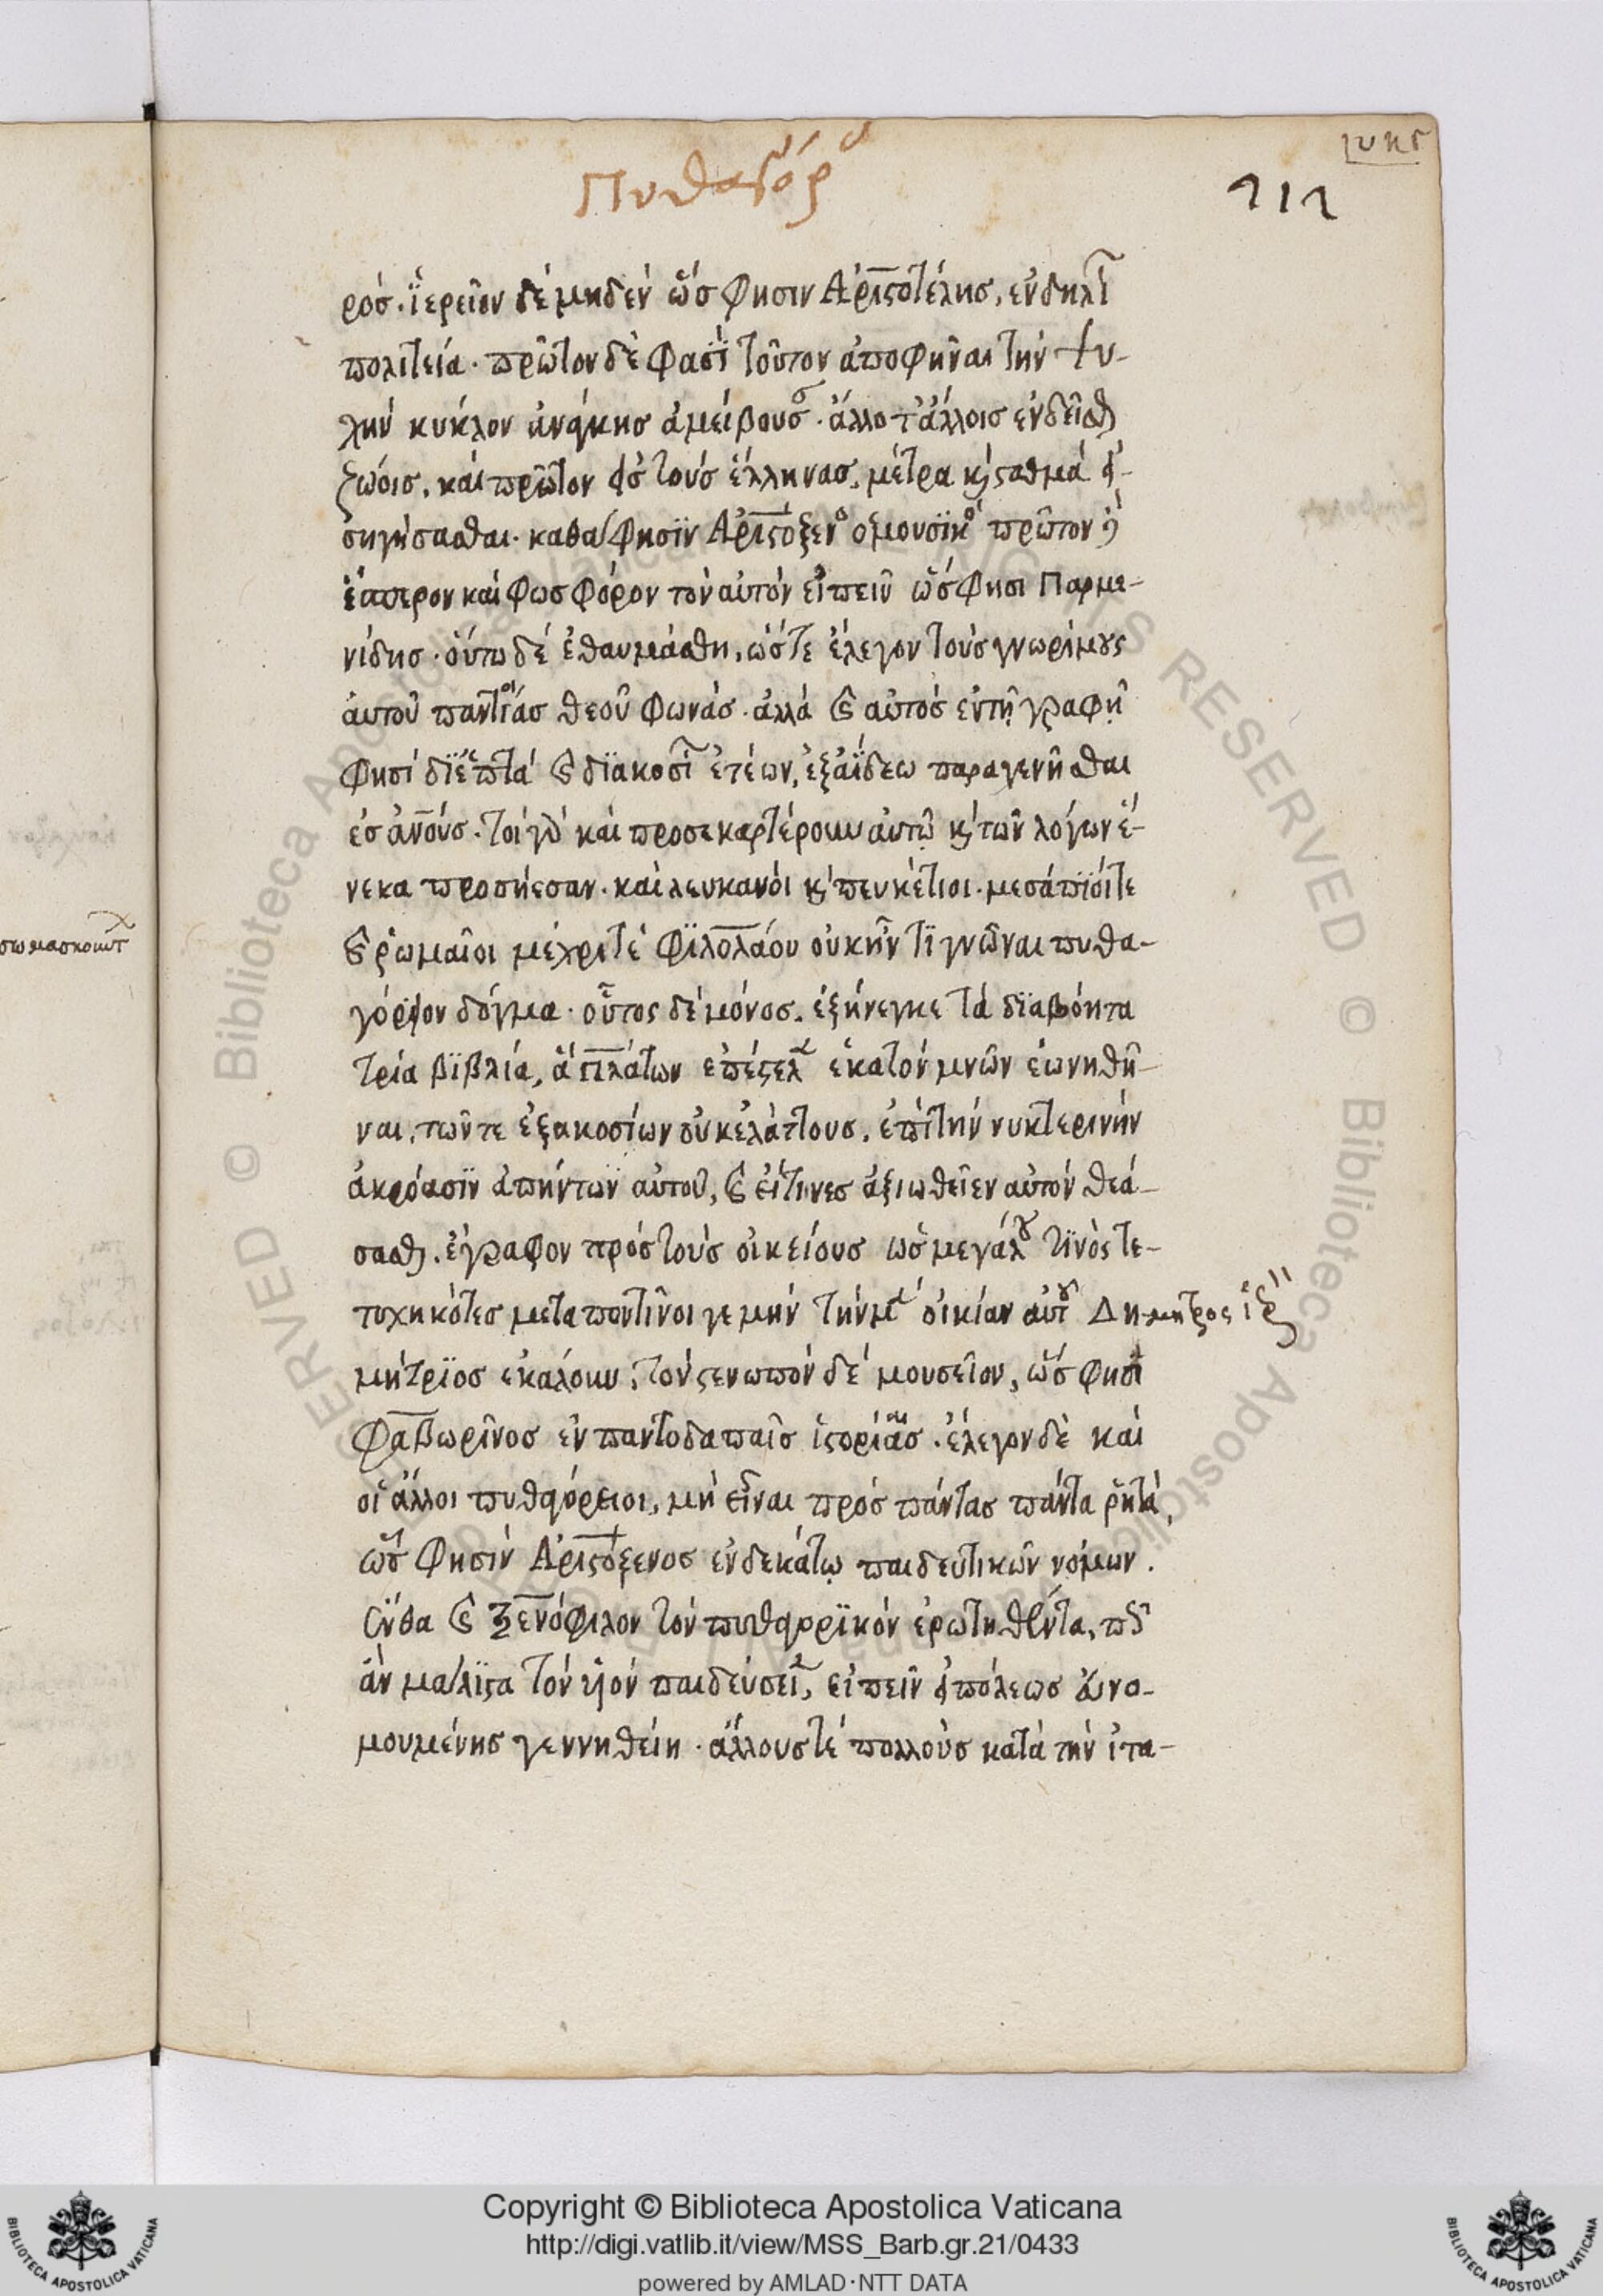 Πυθαγόρου
212
ρός. ἱερεῖον δὲ μηδέν ὥς φησιν Ἀριστοτέλης, ἐν δηλί
πολιτεία. πρῶτον δὲ φασὶ τοῦτον ἀποφῆναι τὴν ψυ-
χὴν κύκλον ἀνάγκης ἀμείβουσαν. ἄλλοτ' ἄλλοις ἐνδεῖσθαι
ζώοις. καὶ πρῶτον εἰς τοὺς ἕλληνας. μέτρα καὶ σταθμά εἰ-
σηγήσασθαι. καθά φησὶν Ἀριστόξενος ὁ μουσικός πρῶτον
ἕσπερον καὶ φωσφόρον τὸν αὐτόν εἰπεῖν ὥς φησι Παρμε-
νίδης. οὕτω δὲ ἐθαυμάσθη, ὥστε ἔλεγον τοὺς γνωρίμους
αὐτοῦ παντοίας θεοῦ φωνάς. ἀλλά καὶ αὐτός ἐν τῇ γραφῇ
φησί δι' ἑπτά καὶ διακοσίων ἐτέων, ἐξ ἀΐδεω παραγενῆσθαι
ἐς ἀνούς. τοιγὰρ καὶ προσεκαρτέρουν αὐτῷ καὶ τῶν λόγων ἕ-
νεκα προσήεσαν. καὶ λευκανοί καὶ πευκέτιοι. μεσάπιοί τε
καὶ ῥωμαῖοι μέχρι τὲ φιλολάου οὐκ ἦν τί γνῶναι πυθα-
γόρειον δόγμα. οὗτος δὲ μόνος. ἐξήνεγκε τὰ διαβόητα
τρία βιβλία, ἅ πλάτων ἐπέστειλεν ἑκατόν μνῶν ἐωνηθῆ-
ναι. τῶν τε ἑξακοσίων οὐκ ἐλάττους. ἐπὶ τὴν νυκτερινήν
ἀκρόασιν ἀπήντων αὐτοῦ, καὶ εἴ τινες ἀξιωθεῖεν αὐτόν θεά-
σασθαι. ἔγραφον πρός τοὺς οἰκείους ὡς μεγάλου τινός τε-
τυχηκότες μεταποντῖνοι γε μὴν τὴν μὲν οἰκίαν αὐτοῦ Δη-μητρος ἱερ
μήτριος ἐκάλουν, τὸν στενωπόν δὲ μουσεῖον, ὥς φησι
φαβωρῖνος ἐν παντοδαπαῖς ἱστορίαις. ἔλεγον δὲ καὶ
οἱ ἄλλοι πυθαγόρειοι, μὴ εἶναι πρός πάντας πάντα ῥητά,
ὥς φησίν Ἀριστόξενος ἐν δεκάτῳ παιδευτικῶν νόμων.
ἔνθα καὶ Ξενόφιλον τὸν πυθαγορικόν ἐρωτηθέντα, πῶς
ἂν μάλιστα τὸν υἱὸν παιδεύσειεν, εἰπεῖν εἰ πόλεως εὐνο-
μουμένης γεννηθείη. ἄλλους τὲ πολλούς κατά τὴν ἰτα-
Copyright © Biblioteca Apostolica Vaticana
http://digi.vatlib.it/view/MSS_Barb.gr.21/0433
powered by AMLAD·NTT DATA